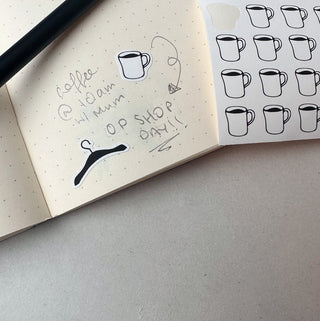 coffee
@ 10am
w/ Mum
OP SHOP
DAY!!